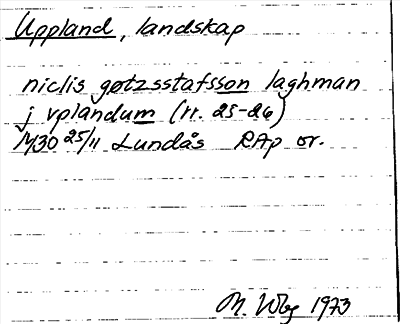 Uppland, landskap
niclis gøtzsstafsson laghman
j vplandum (rr. 25-26)
1430 25/11 Lundås RAp or.
M. Wbg 1973